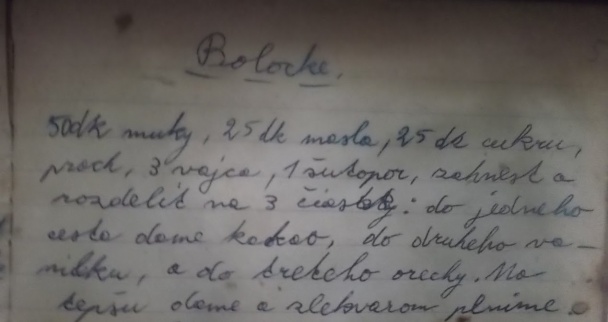 Bolocke.
50dk muky, 25 dk masla, 25 dk cukru,
proch, 3 vajca, 1 šutopor, zahnest a
rozdelit na 3 čiastky: do jedneho
cesta dame kakao, do druheho va-
nilku, a do treteho orechy. Na
tepšu dame a zlekvarom plnime.